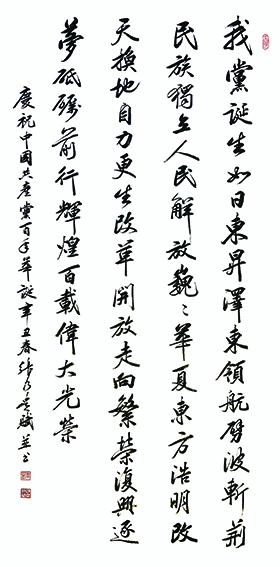 我黨誕生如日東昇澤東領航劈波斬荊
民族獨立人民解放巍〻華夏東方浩明改
天換地自力更生改革開放走向繁榮復興逐
夢砥礪前行輝煌百載偉大光榮
慶祝中國共產黨百年華誕辛丑春